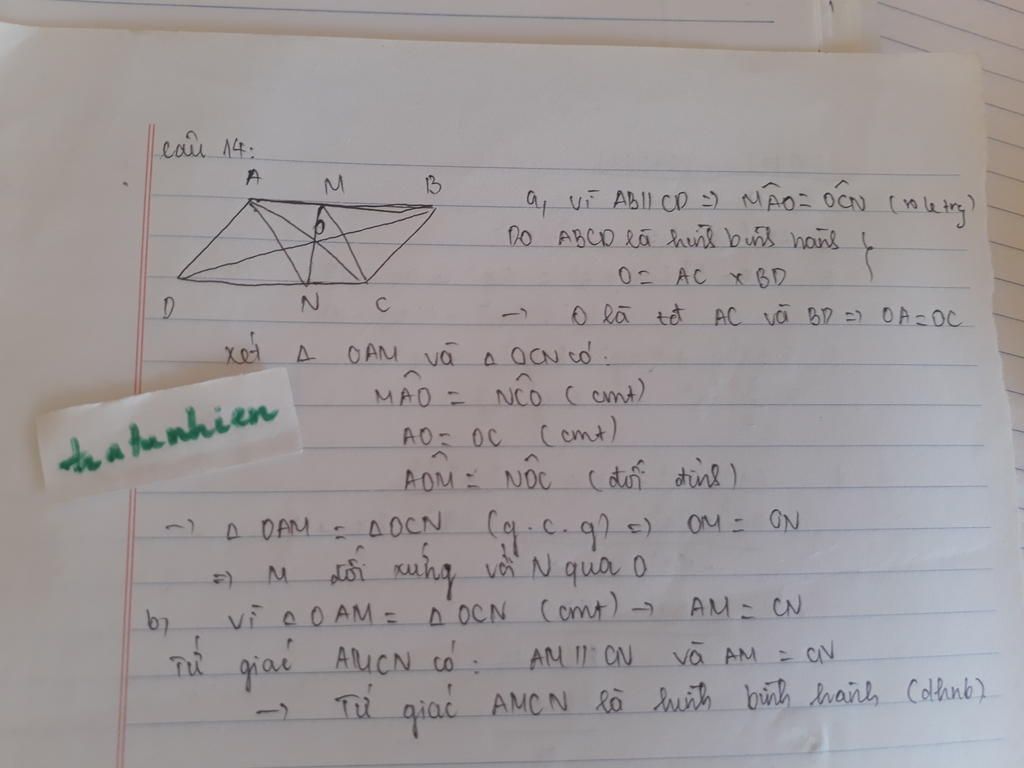 Câu 14:
A M B
O
D N C
a, vì AB // CD => MÂO = OĈN (so le trg)
Do ABCD là hình bình hành }
O = AC x BD
→ O là tđ AC và BD => OA = OC
xét Δ OAM và Δ OCN có:
MÂO = NĈO (cmt)
AO = OC (cmt)
AÔM = NÔC (đối đỉnh)
→ Δ OAM = Δ OCN (g.c.g) => OM = ON
=> M đối xứng với N qua O
b, vì Δ OAM = Δ OCN (cmt) → AM = CN
Tứ giác AMCN có: AM // CN và AM = CN
→ Tứ giác AMCN là hình bình hành (dhnb)